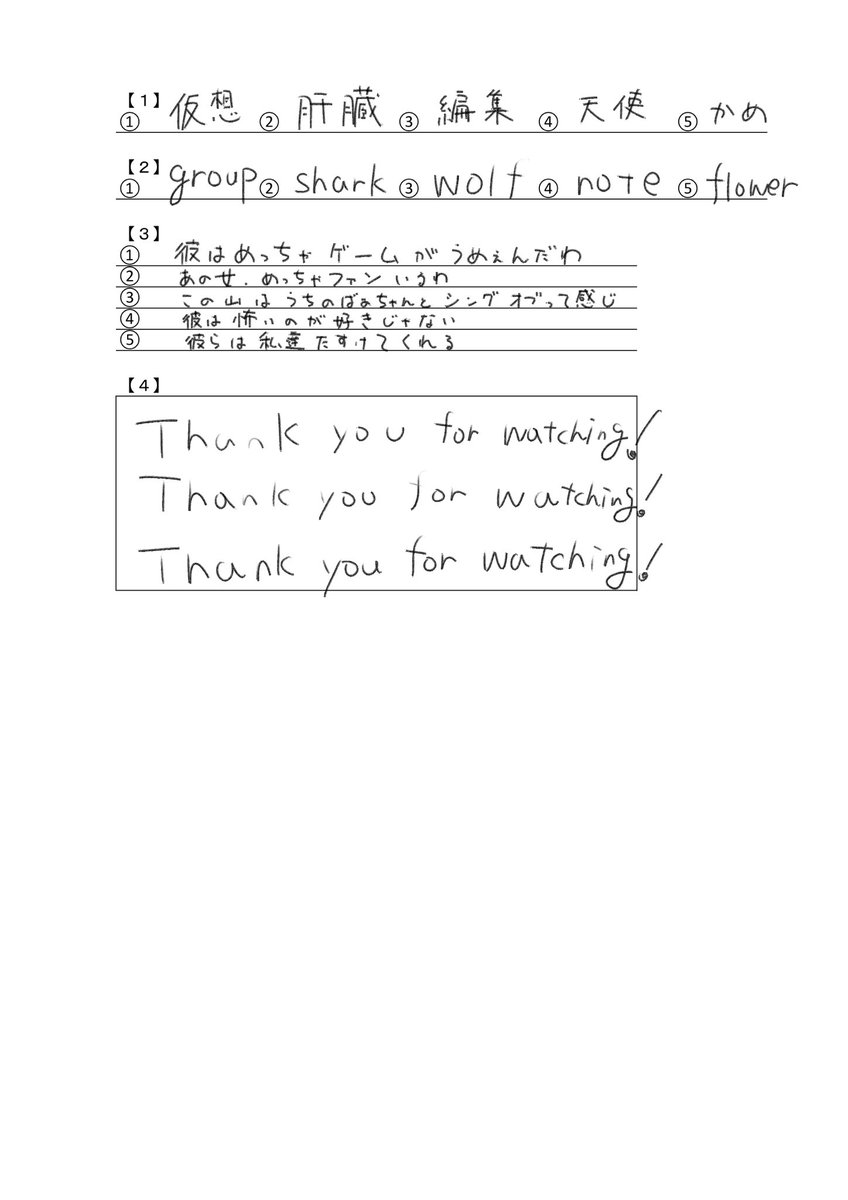 【1】
① 仮想 ② 肝臓 ③ 編集 ④ 天使 ⑤ かめ
【2】
① group ② shark ③ wolf ④ note ⑤ flower
【3】
① 彼はめっちゃゲームがうめぇんだわ
② あのせ、めっちゃファンいるわ
③ この山はうちのばぁちゃんとシングオブって感じ
④ 彼は怖いのが好きじゃない
⑤ 彼らは私達たすけてくれる
【4】
Thank you for watching!
Thank you for watching!
Thank you for watching!